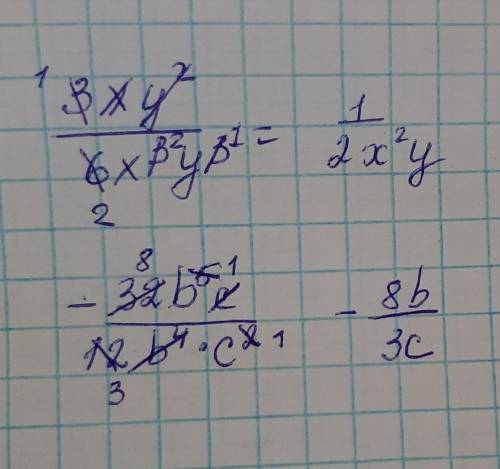 1 3xy² / 6x³² y³¹ = 1 / 2x²y
2
8 1
- 32b⁵c / 12b⁴·c² 1 - 8b / 3c
3